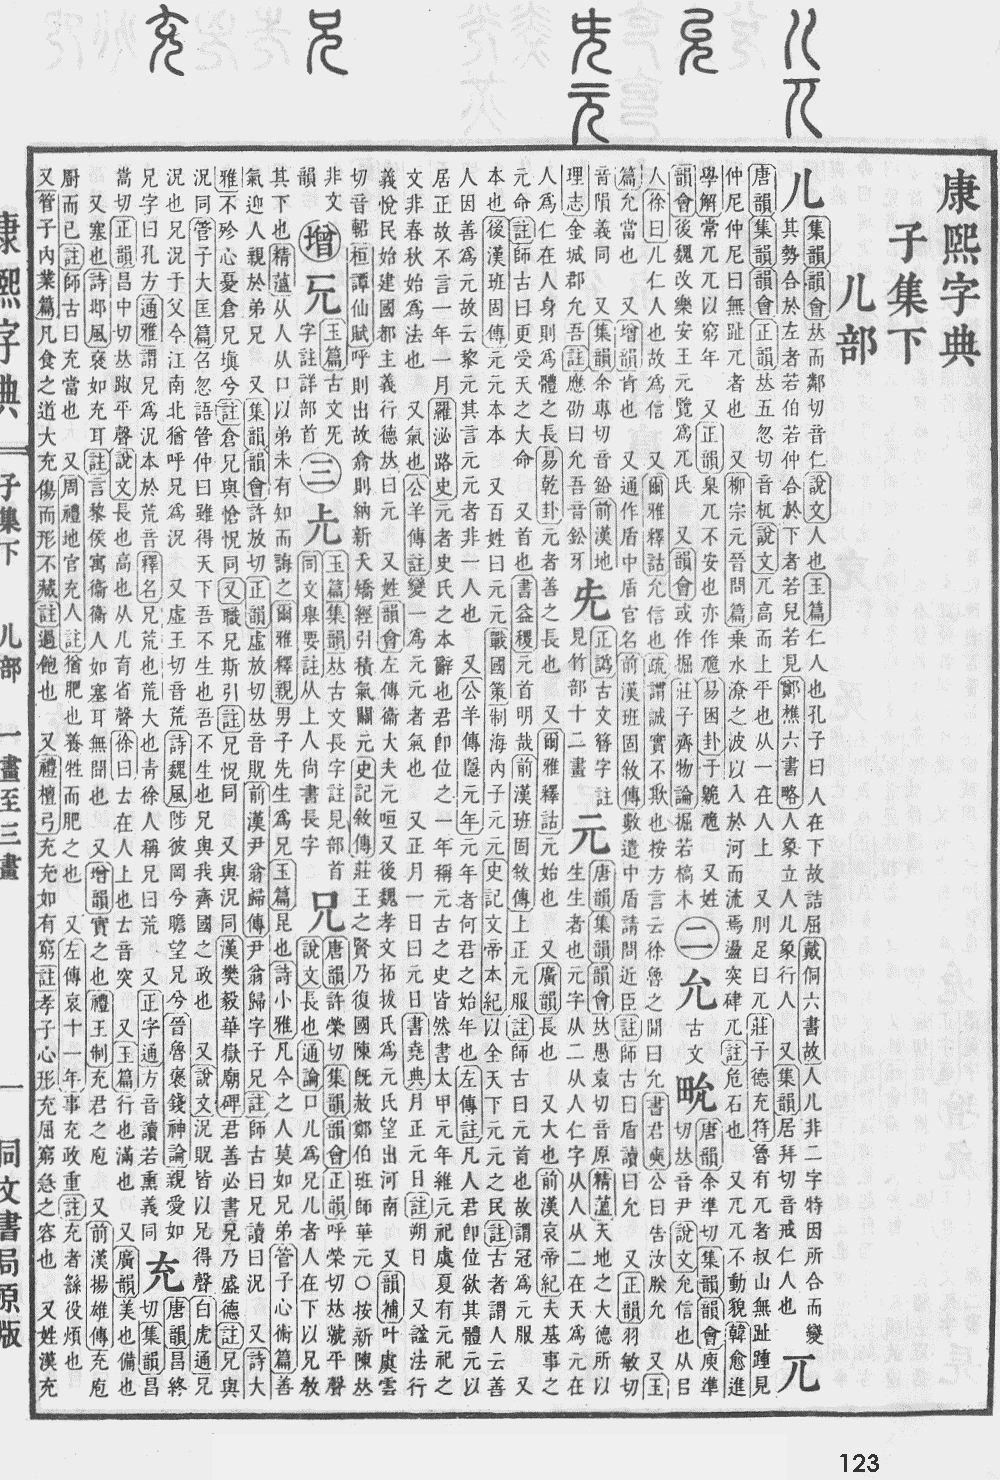 康熙字典
子集下
儿部
儿 集韻韻會𠀤而鄰切音仁說文人也玉篇仁人也孔子曰人在下故詰屈戴侗六書故人儿非二字特因所合而變
其勢合於左者若伯若仲合於下者若兒若見鄭樵六書略人象立人儿象行人 又集韻居拜切音戒仁人也 兀
唐韻集韻韻會正韻𠀤五忽切音杌說文兀高而上平也从一在人上 又刖足曰兀莊子德充符魯有兀者叔山無趾踵見
仲尼仲尼曰無趾兀者也 又柳宗元晉問篇乗水潦之波以入於河而流焉盪突硉兀註危石也 又兀兀不動貌韓愈進
學解常兀兀以窮年 又正韻臬兀不安也亦作卼易困卦于臲卼 又姓
韻會後魏改樂安王元覽爲兀氏 又韻會或作掘莊子齊物論掘若槁木
㊁ 允 古文 㽙 唐韻余準切集韻韻會庾準
切𠀤音尹說文允信也从㠯
儿徐曰儿仁人也故爲信 又爾雅釋詁允信也疏謂誠實不欺也按方言云徐魯之閒曰允書君奭公曰告汝朕允 又玉
篇允當也 又增韻肯也 又通作盾中盾官名前漢班固敘傳數遣中盾請問近臣註師古曰盾讀曰允 又正韻羽敏切
音隕義同 又集韻余專切音鉛前漢地
理志金城郡允吾註應劭曰允吾音鉛牙
兂 正譌古文簪字註
見竹部十二畫
元 唐韻集韻韻會𠀤愚袁切音原精薀天地之大德所以
生生者也元字从二从人仁字从人从二在天爲元在
人爲仁在人身則爲體之長易乾卦元者善之長也 又爾雅釋詁元始也 又廣韻長也 又大也前漢哀帝紀夫基事之
元命註師古曰更受天之大命 又首也書益稷元首明哉前漢班固敘傳上正元服註師古曰元首也故謂冠爲元服 又
本也後漢班固傳元元本本 又百姓曰元元戰國策制海內子元元史記文帝本紀以全天下元元之民註古者謂人云善
人因善爲元故云黎元其言元元者非一人也 又公羊傳隱元年元年者何君之始年也左傳註凡人君卽位欲其體元以
居正故不言一年一月羅泌路史元者史氏之本辭也君卽位之一年稱元古之史皆然書太甲元年維元祀虞夏有元祀之
文非春秋始爲法也 又氣也公羊傳註變一爲元元者氣也 又正月一日曰元日書堯典月正元日註朔日 又諡法行
義悅民始建國都主義行德𠀤曰元 又姓韻會左傳衞大夫元咺又後魏孝文拓拔氏爲元氏望出河南 又韻補叶虞雲
切音輑桓譚仙賦呼則出故翕則納新夭矯經引積氣關元史記敘傳莊王之賢乃復國陳旣赦鄭伯班師華元○按新陳𠀤
非文
韻
增 玉篇古文旡
字註詳部首
㊂ 玉篇集韻𠀤古文長字註見部首
同文舉要註从上人尙書長字
兄 唐韻許榮切集韻韻會正韻呼榮切𠀤𧦝平聲
說文長也通論口儿爲兄儿者人在下以兄敎
其下也精薀从人从口以弟未有知而誨之爾雅釋親男子先生爲兄玉篇昆也詩小雅凡今之人莫如兄弟管子心術篇善
氣迎人親於弟兄 又集韻韻會許放切正韻虛放切𠀤音貺前漢尹翁歸傳尹翁歸字子兄註師古曰兄讀曰況 又詩大
雅不殄心憂倉兄塡兮註倉兄與愴怳同又職兄斯引註兄怳同 又與況同漢樊毅華嶽廟碑君善必書兄乃盛德註兄與
況同管子大匡篇召忽語管仲曰雖得天下吾不生也兄與我齊國之政也 又說文況貺皆以兄得聲白虎通兄
況也兄況于父今江南北猶呼兄爲況 又虛王切音荒詩魏風陟彼岡兮瞻望兄兮晉魯褒錢神論親愛如
兄字曰孔方通雅謂兄爲況本於荒音釋名兄荒也荒大也靑徐人稱兄曰荒 又正字通方音讀若熏義同
充 唐韻昌終
切集韻昌
嵩切正韻昌中切𠀤踧平聲說文長也高也从儿育省聲徐曰𠫓在人上也𠫓音突 又玉篇行也滿也 又廣韻美也備也
又塞也詩邶風褎如充耳註言黎侯寓衞衞人如塞耳無聞也 又增韻實之也禮王制充君之庖 又前漢揚雄傳充庖
廚而已註師古曰充當也 又周禮地官充人註猶肥也養牲而肥之也 又左傳哀十一年事充政重註充者繇役煩也
又管子內業篇凡食之道大充傷而形不藏註過飽也 又禮檀弓充充如有窮註孝子心形充屈窮急之容也 又姓漢充
康熙字典 子集下 儿部 一畫至三畫 一 同文書局原版
123